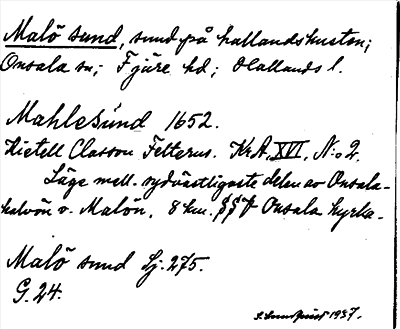 Malö sund, sund på hallandskusten;
Onsala sn; Fjäre hd; Hallands l.
Mahlesund 1652.
Kietell Classon Felterus. KrA, XVI, N:o 2.
Läge mell. sydvästligaste delen av Onsala-
halvön o. Malön. 8 km. Onsala kyrka.
Malö sund Sj. 275.
G. 24.
1937.